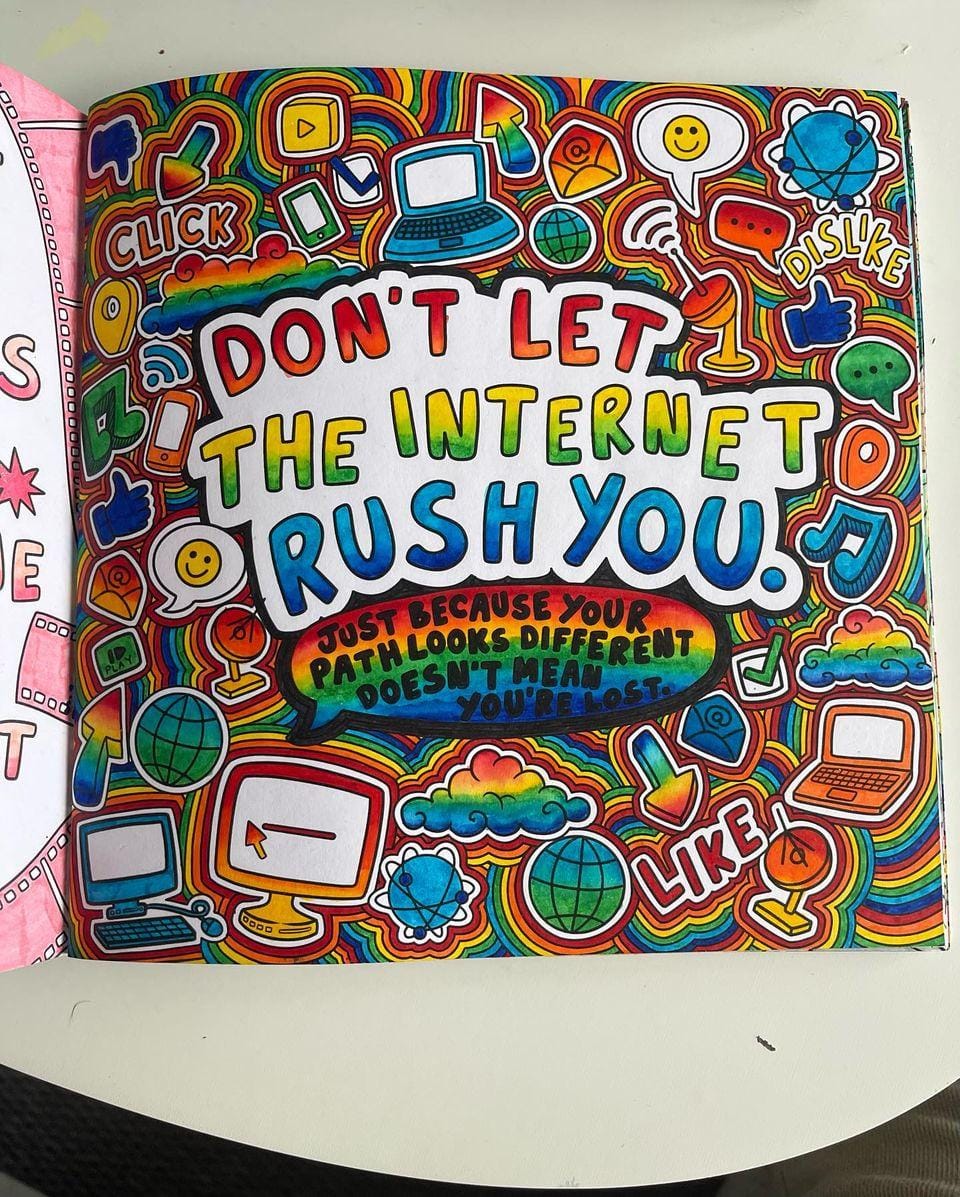 CLICK
DISLIKE
DON'T LET
THE INTERNET
RUSH YOU.
JUST BECAUSE YOUR
PATH LOOKS DIFFERENT
DOESN'T MEAN
YOU'RE LOST.
PLAY
LIKE
S
UE
T